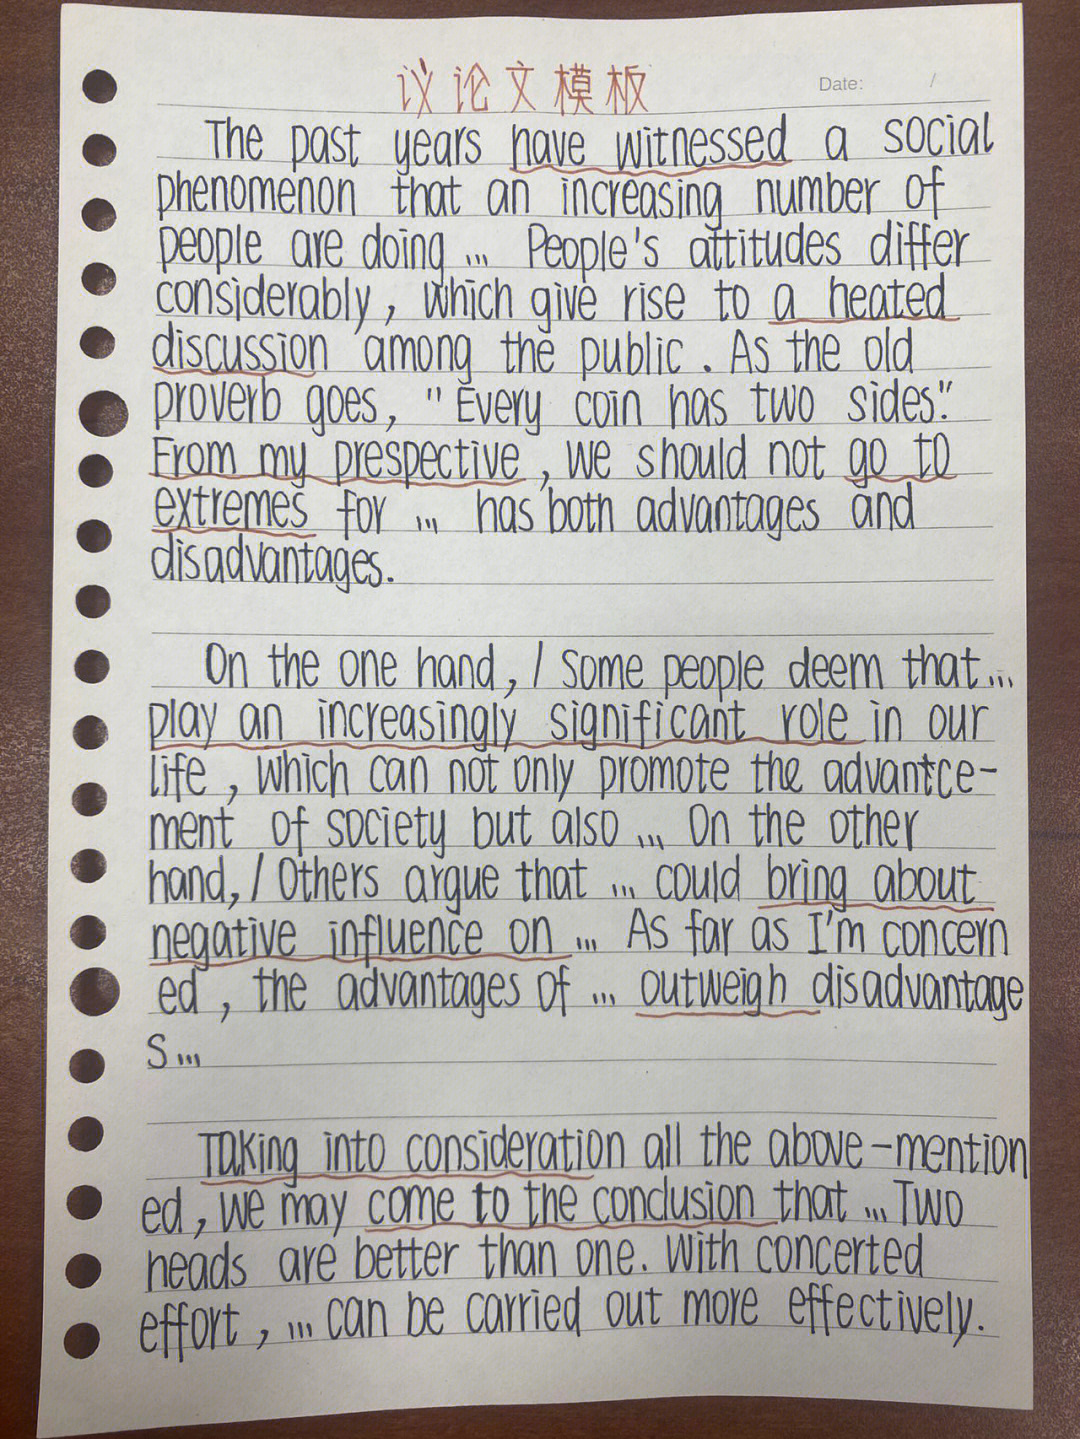 议论文模板
Date: /
The past years have witnessed a social
phenomenon that an increasing number of
people are doing ... People's attitudes differ
considerably, which give rise to a heated
discussion among the public. As the old
proverb goes, "Every coin has two sides."
From my prespective, we should not go to
extremes for ... has both advantages and
disadvantages.
On the one hand, / some people deem that...
play an increasingly significant role in our
life, which can not only promote the advantce-
ment of society but also ... On the other
hand, / Others argue that ... could bring about
negative influence on ... As far as I'm concern
ed, the advantages of ... outweigh disadvantage
s...
Taking into consideration all the above-mention
ed, we may come to the conclusion that ... Two
heads are better than one. With concerted
effort, ... can be carried out more effectively.